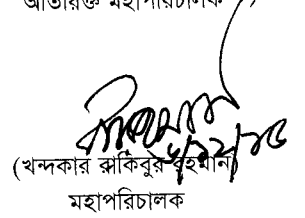 অতিরিক্ত মহাপরিচালক
(খন্দকার রাকিবুর রহমান)
মহাপরিচালক